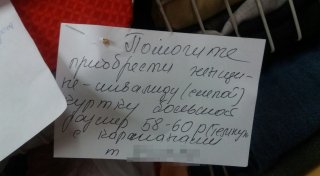 Помогите
приобрести женщи-
не-инвалиду (слепой)
куртку большой
размер 58-60 р (темную
с карманами
т